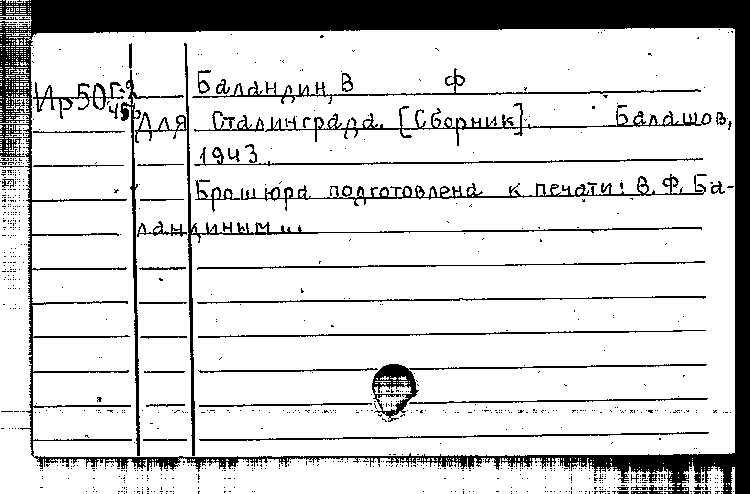 Баландин, В Ф
Ир50
Для Сталинграда. [Сборник]. Балашов,
1943.
Брошюра подготовлена к печати: В. Ф. Ба-
ландиным...